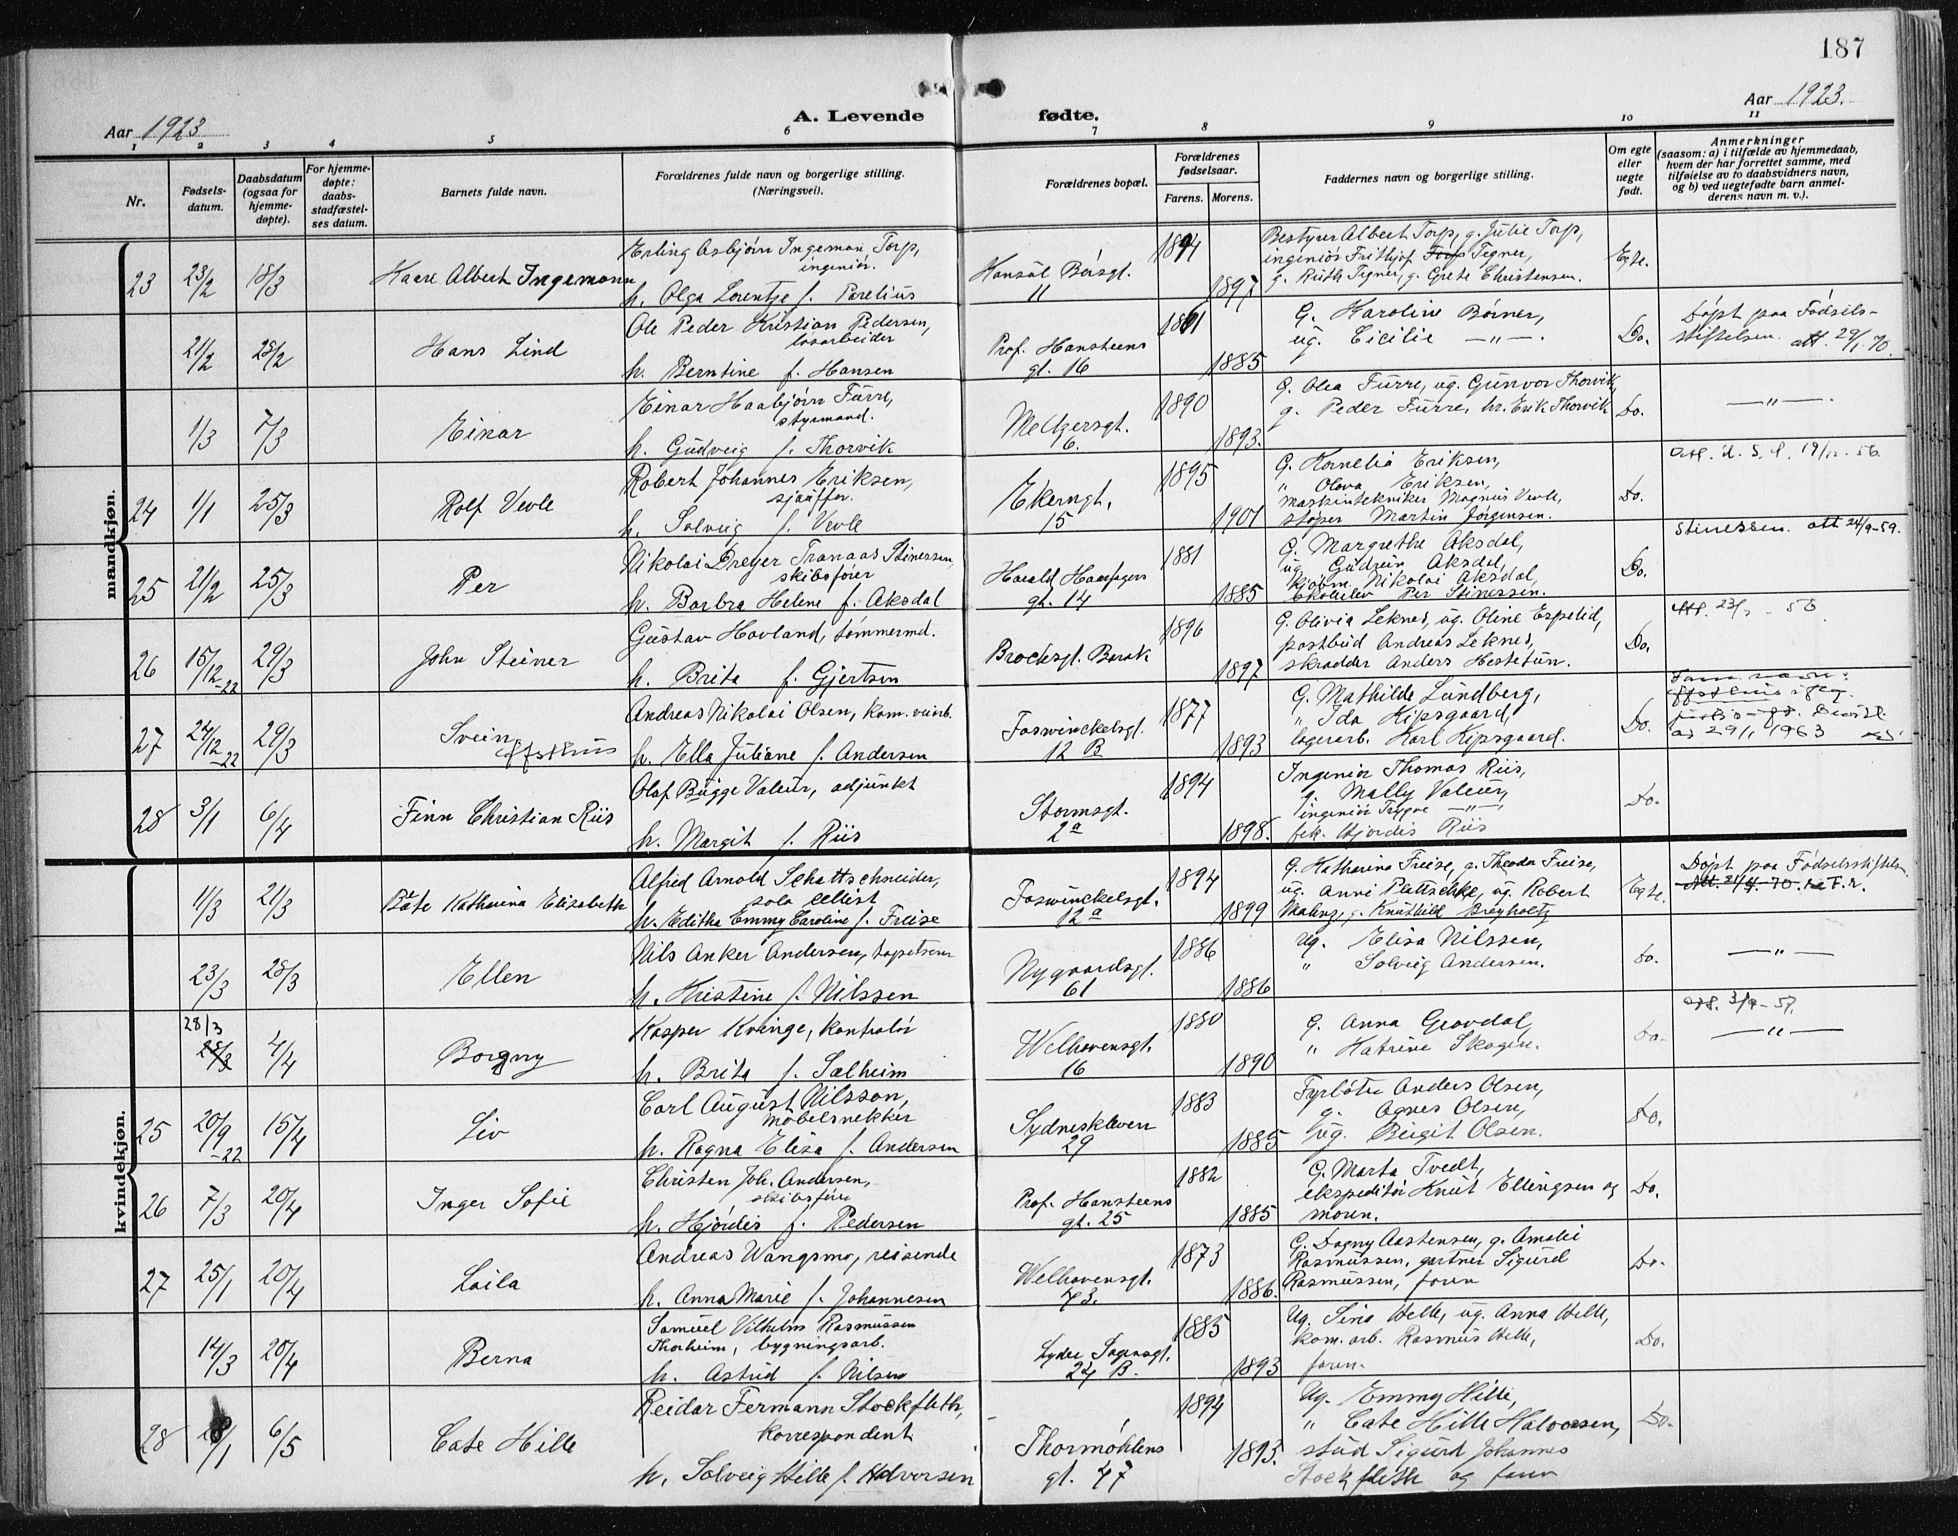 187
Aar 1923
A. Levende fødte.
Aar 1923.
1 2 3 4 5 6 7 8 9 10 11
Nr.
Fødsels-
datum.
Daabsdatum
(ogsaa for
hjemme-
døpte).
For hjemme-
døpte:
daabs-
stadfæstel-
ses datum.
Barnets fulde navn.
Forældrenes fulde navn og borgerlige stilling.
(Næringsvei).
Forældrenes bopæl.
Forældrenes
fødselsaar.
Farens. Morens.
Faddernes navn og borgerlige stilling.
Om egte
eller
uegte
født.
Anmerkninger
(saasom: a) i tilfælde av hjemmedaab,
hvem der har forrettet samme, med
tilføielse av to daabsvidners navn,
og b) ved uegtefødte barn anmel-
derens navn m. v.).
mandkjøn.
23 23/2 18/3 Kaare Albert Ingemann
Erling Asbjørn Ingeman Torp,
ingeniør.
h. Olga Lorentze f. Parelius
11
1894 1897
Bestyrer Albert Torp, g. Julie Torp,
ingeniør Frithjof Torp Tegner,
g. Ruth Tegner, g. Grete Christensen.
Egte.
21/2 28/2 Hans Lind
Ole Peder Kristian Pedersen,
løsarbeider
h. Berntine f. Hansen
Prof. Hansteens
gt. 16
1861 1885
G. Karoline Børner,
ug. Cicilie — " —.
Do.
Døpt paa Fødsels-
stiftelsen. att. 29/1. 70.
1/3 7/3 Einar
Einar Haabjørn Furre,
styrmand.
h. Gudveig f. Thorvik
Meltzersgt.
6.
1890 1893.
G. Olea Furre, ug. Gunvor Thorvik,
g. Peder Furre, hr. Erik Thorvik
Do.
— " —.
24 1/1 25/3 Rolf Vevle
Robert Johannes Eriksen,
sjaaffør.
h. Solveig f. Vevle
Ekerngt.
15
1895 1901
G. Kornelia Eriksen,
" Olova Eriksen,
Maskintekniker Magnus Vevle,
støper Martin Jørgensen.
Do.
25 21/2 25/3 Per
Nikolai Dreyer Tranaas Stinessen
skibsfører
h. Barbra Helene f. Aksdal
Harald Haarfagers
gt. 14
1881 1885
G. Margrethe Aksdal,
ug. Gudrun Aksdal,
kjøbm. Nikolai Aksdal,
Skoleelev Per Stinessen.
Do.
Stinessen. att 24/9-59.
26 15/12-22 29/3 John Steinar
Gustav Hovland, tømmermd.
h. Brita f. Gjertsen
Brocksgt. Barak
1896 1897
G. Olivia Leknes, ug. Oline Espelid,
postbud Andreas Leknes,
skrædder Anders Hestetun.
Do.
27 24/12-22 29/3 Svein
Andreas Nikolai Olsen, kom. veiarb.
h. Ella Juliane f. Andersen
Foswinckelsgt.
12 B
1877 1893
G. Mathilde Lundberg,
" Ida Kipsgaard,
lagerarb. Karl Kipsgaard.
Do.
29/1 1963
28 3/1 6/4 Finn Christian Riis
Olaf Bugge Valeur, adjunkt
h. Margit f. Riis
Stormsgt.
2a
1894 1898.
Ingeniør Thomas Riis,
g. Mally Valeur,
ingeniør Trygve — " —,
frk. Hjordis Riis
Do.
kvindekjøn.
11/3 21/3 Bäte Katharina Elisabeth
Alfred Arnold Schattschneider,
solo cellist
h. Editha Emmy Caroline f. Freise
Foswinckelsgt.
12a
1894 1899
G. Katharina Freise, g. Theodor Freise,
Egte.
Døpt paa Fødselsstiftels.
23/3 28/3 Ellen
Nils Anker Andersen, tapetserer
h. Kristine f. Nilssen
Nygaardsgt.
61
1886 1886
Ug. Elisa Nilssen,
" Solveig Andersen.
Do.
— " —
28/3 4/4 Borgny
Kasper Kvinge, kontrolør
h. Brita f. Sælheim
Welhavensgt.
16
1880 1890
G. Anna Grovdal,
" Katrine Skogen.
Do.
— " —
25 20/9-22 15/4 Liv
Carl August Nilsson,
møbelsnekker
h. Ragna Elisa f. Andersen
Sydneskleven
29
1883 1885
Fyrbøter Anders Olsen,
g. Agnes Olsen,
ug. Birgit Olsen.
Do.
26 7/3 20/4 Inger Sofie
Christen Joh. Andersen,
skibsfører
h. Hjørdis f. Pedersen
Prof. Hansteens
gt. 25
1882 1885
G. Marta Tvedt,
ekspeditør Knut Ellingsen og
moren.
Do.
27 25/1 20/4 Laila
Andreas Wangsmo, reisende
h. Anna Marie f. Johannesen
Welhavensgt.
73.
1873 1886.
G. Dagny Aastensen, g. Amalie
Rasmussen, gartner Sigurd
Rasmussen, faren
Do.
14/3 20/4 Berna
Samuel Vilhelm Rasmussen
Thorheim, bygningsarb.
h. Astrid f. Nilsen
Lyder Sagensgt.
24 B.
1885 1893
Ug. Sina Helle, ug. Anna Helle,
kom. arb. Rasmus Helle,
faren.
Do.
28 6/5 Cate Hille
Reidar Fermann Stockfleth,
korrespondent
h. Solveig Hille f. Halvorsen
Thormøhlens
gt. 47
1894 1893.
Ug. Emmy Hille,
" Cate Hille Halvorsen,
stud Sigurd Johannes
Stockfleth og faren
Do.